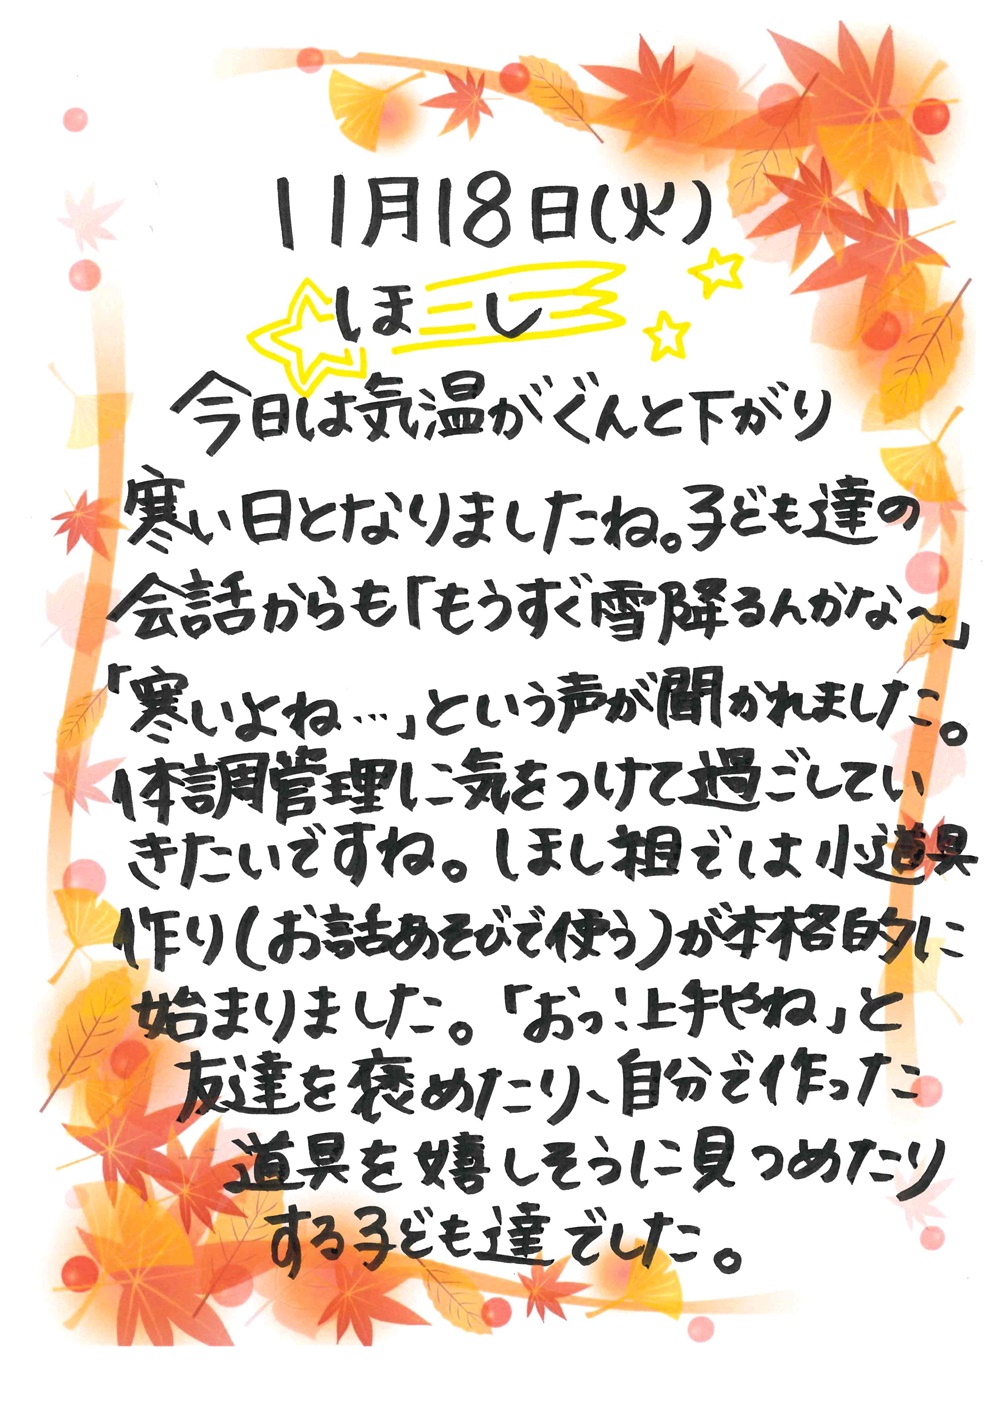 11月18日(火)
ほし
今日は気温がぐんと下がり
寒い日となりましたね。子ども達の
会話からも「もうすぐ雪降るんかな〜」
「寒いよね…」という声が聞かれました。
体調管理に気をつけて過ごしてい
きたいですね。ほし組では小道具
作り(お話あそびで使う)が本格的に
始まりました。「おっ!上手やね」と
友達を褒めたり、自分で作った
道具を嬉しそうに見つめたり
する子ども達でした。